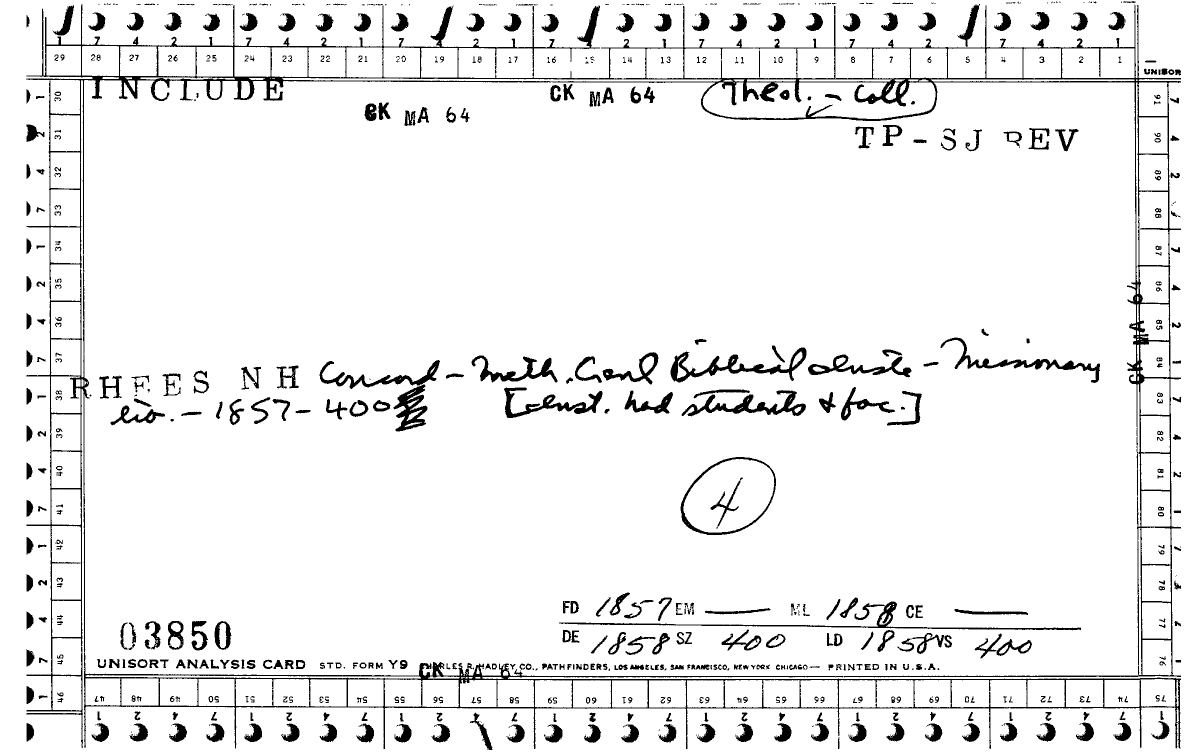 1 7 4 2 1 7 4 2 1 7 4 2 1 7 4 2 1 7 4 2 1 7 4 2 1 7 4 2 1
29 28 27 26 25 24 23 22 21 20 19 18 17 16 15 14 13 12 11 10 9 8 7 6 5 4 3 2 1
UNISOR
INCLUDE
CK MA 64
CK MA 64
Theol. - Coll.
TP-SJ REV
CK MA 64
RHEES NH Concord - Meth. Genl Biblical Inste - Missionary
lib. - 1857 - 400 [Inst. had students & fac.]
4
FD 1857 EM — ML 1858 CE —
DE 1858 SZ 400 LD 1858 VS 400
03850
UNISORT ANALYSIS CARD STD. FORM Y9 CHARLES R. HADLEY CO., PATHFINDERS, LOS ANGELES, SAN FRANCISCO, NEW YORK CHICAGO — PRINTED IN U.S.A.
CK MA 64
30 31 32 33 34 35 36 37 38 39 40 41 42 43 44 45 46
91 90 89 88 87 86 85 84 83 82 81 80 79 78 77 76 75
47 48 49 50 51 52 53 54 55 56 57 58 59 60 61 62 63 64 65 66 67 68 69 70 71 72 73 74